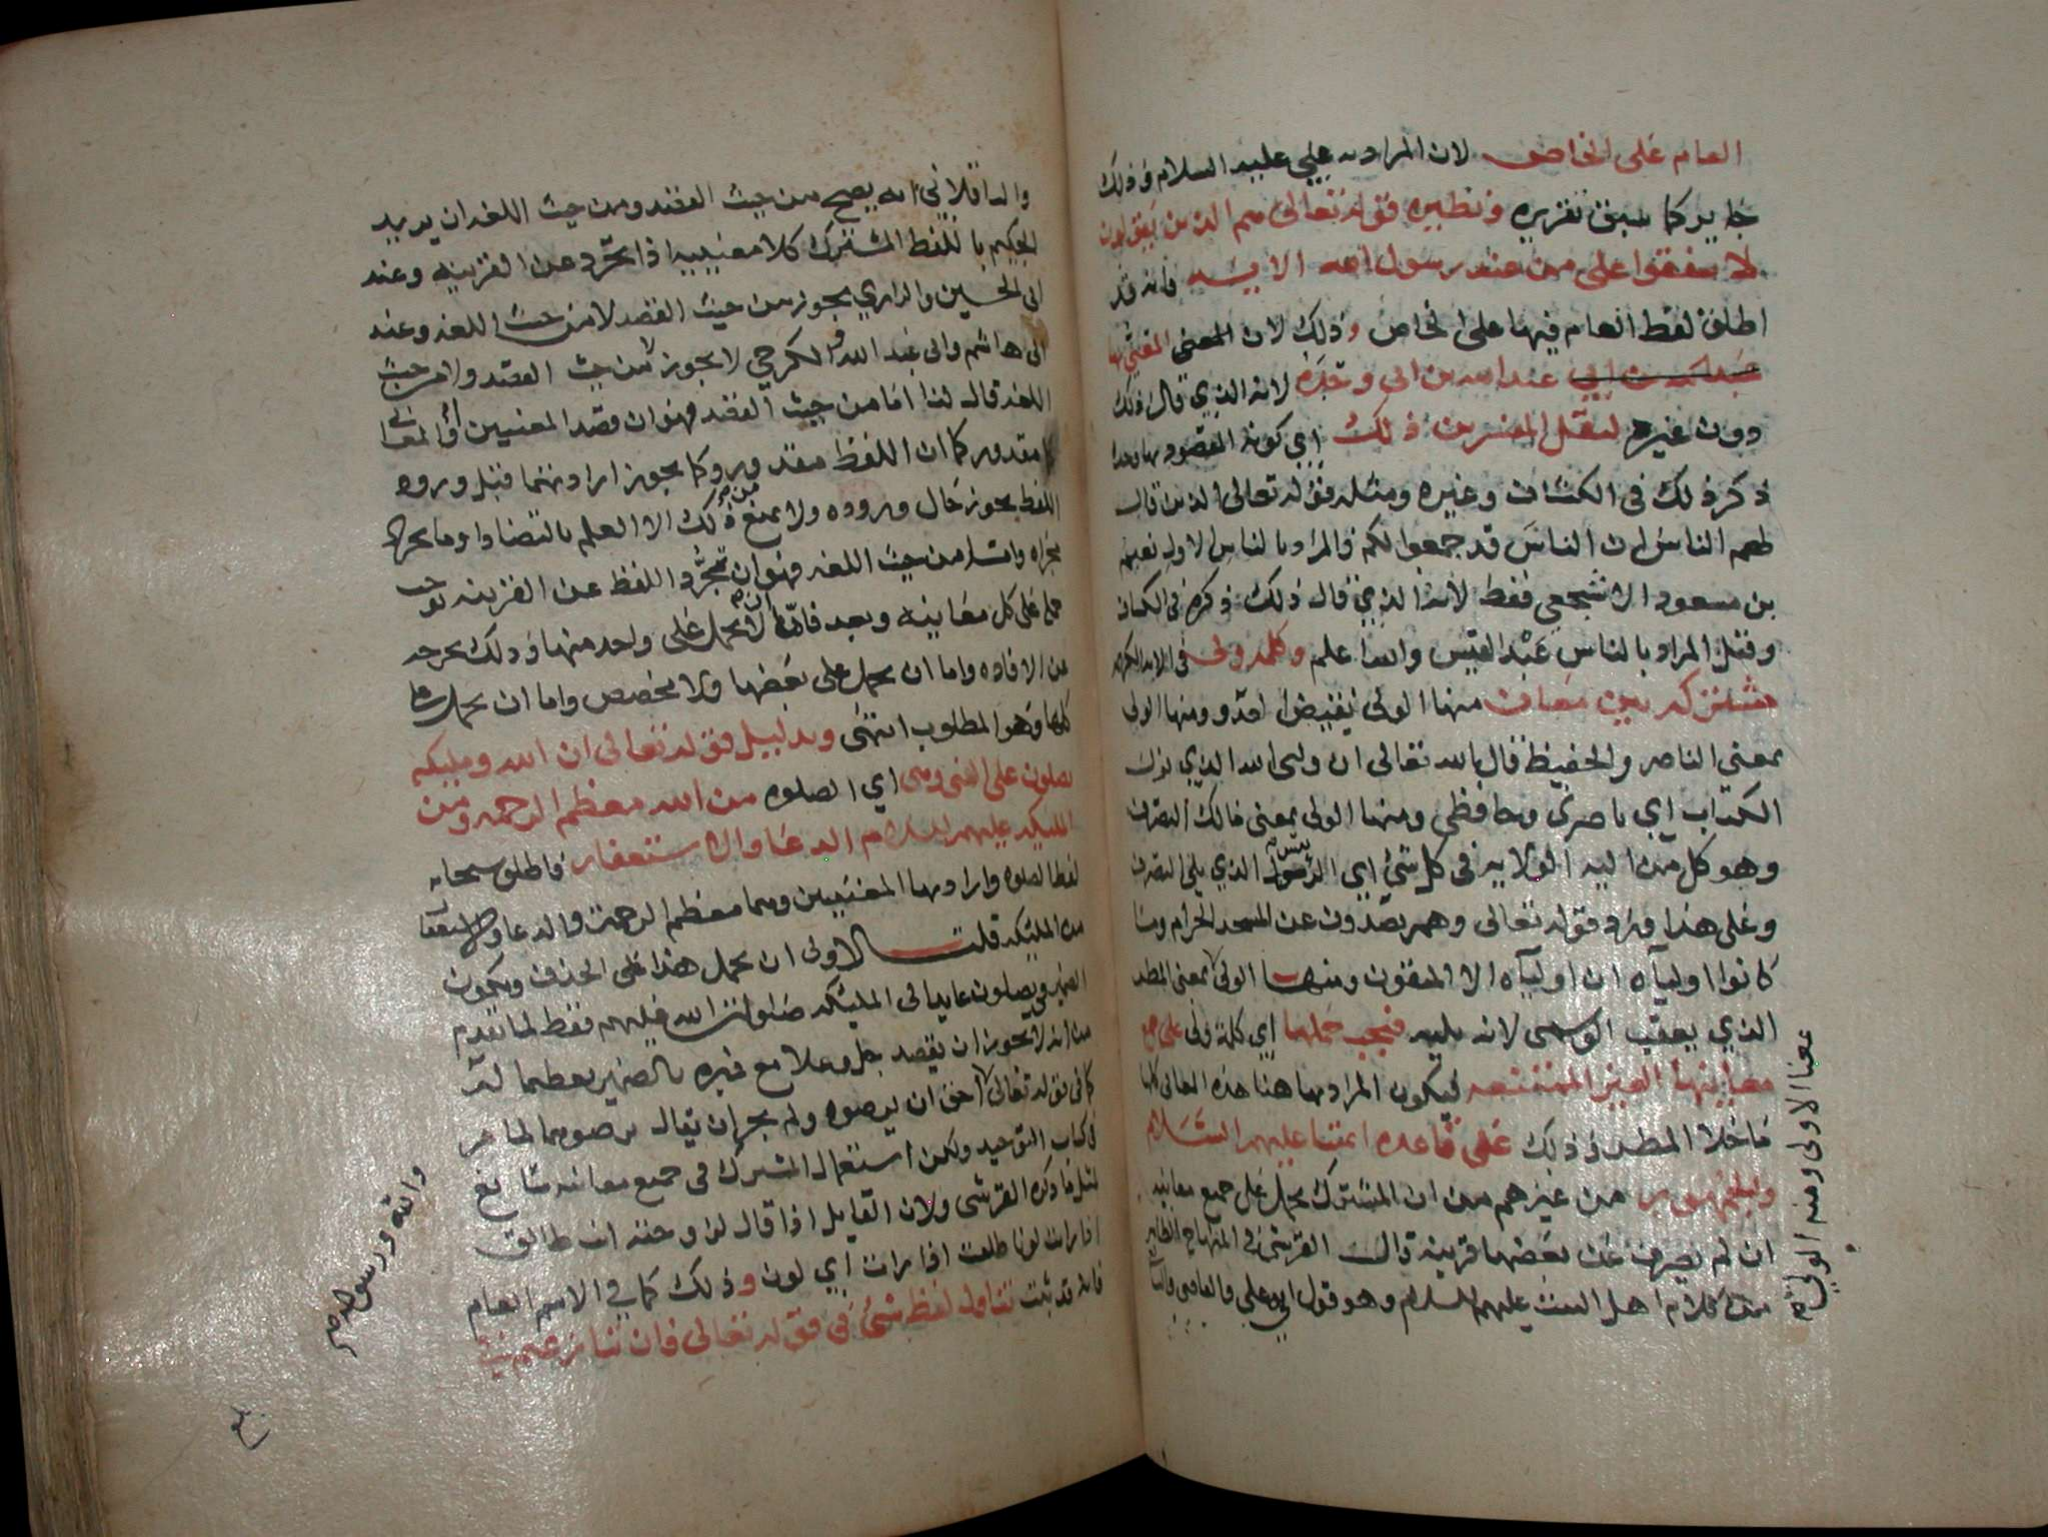 العام على الخاص لان المراد به علي عليه السلام وذلك
جايز كما سبق تقريره ونظيره قوله تعالى هم الذين يقولون
لا تنفقوا على من عند رسول الله الايه فانه قد
اطلق لفظ العام فيها على الخاص وذلك لان المعني بها
عبد الله بن ابي وحده لانه الذي قال ذلك
دون غيره لنقل المفسرين ذلك اي كونه المقصود بها وحده
ذكر ذلك في الكشاف وغيره ومثله قوله تعالى الذين قال
لهم الناس ان الناس قد جمعوا لكم فالمراد بالناس الاول نعيم
بن مسعود الاشجعي فقط لانه الذي قال ذلك ذكره في الكشاف
وقيل المراد بالناس عبد القيس والله اعلم وكلمة ولي في الايه الكريمه
مشتركه بين معان منها الولي نقيض العدو ومنها الولي
بمعنى الناصر والحفيظ قال الله تعالى ان وليي الله الذي نزل
الكتاب اي ناصري وحافظي ومنها الولي بمعنى مالك التصرف
وهو كل من اليه الولايه في كل شي اي الذي يلي التصرف
وعلى هذا ورد قوله تعالى وهم يصدون عن المسجد الحرام وما
كانوا اولياه ان اولياه الا المتقون ومنها الولي بمعنى المطر
الذي يعقب الوسمى لانه يليه فيجب حملها اي كلمة ولي على جميع
معانيها الغير الممتنعه ليكون المراد بها هنا هذه المعاني كلها
ما خلا المطر وذلك على قاعده ائمتنا عليهم السلام
والجمهور من غيرهم من ان المشترك يحمل على جميع معانيه
ان لم يصرف عن بعضها قرينه قال القرشي في المنهاج الظاهر
من كلام اهل البيت عليهم السلام وهو قول ابي علي والقاضي
معنا الاولى ومنه الولي
والباقلاني انه يصح من حيث القصد ومن حيث اللغه ان يريد
الحكيم باللفظ المشترك كلا معنييه اذا تجرد عن القرينه وعند
ابي الحسين والرازي يجوز من حيث القصد لا من حيث اللغه وعند
ابي هاشم وابي عبد الله والكرخي لا يجوز لا من حيث القصد ولا من حيث
اللغه قال لنا اما من حيث القصد فهو ان قصد المعنيين او المعاني
مقدور كما ان اللفظ مقدور وكما يجوز ارادتهما قبل ورود
اللفظ يجوز حال وروده ولا يمنع من ذلك الا العلم بالتضاد او ما يجري
مجراه واما من حيث اللغه فهو ان تجرد اللفظ عن القرينه توجب
حمله على كل معانيه وبعد فاما ان لا يحمل على واحد منها وذلك يخرجه
عن الافاده واما ان يحمل على بعضها ولا مخصص واما ان يحمل على
كلها وهو المطلوب انتهى وبدليل قوله تعالى ان الله ومليكته
يصلون على النبي وهي اي الصلوه من الله معظم الرحمه ومن
المليكه عليهم السلام الدعا والاستغفار فاطلق سبحانه
لفظ الصلوه واراد بها المعنيين وهما معظم الرحمة والدعا والاستغفار
من المليكه قلت الاولى ان يحمل هذا على الحذف ويكون
الضمير في يصلون عايدا الى المليكه صلوات الله عليهم فقط لما تقدم
من انه لا يجوز ان يقصد جل وعلا مع غيره بالضمير تعظيما له
كما في قوله تعالى احق ان يرضوه ولم يجز ان يقال يرضوهما لما مر
في كتاب التوحيد ولكن استعمال المشترك في جميع معانيه شايع
لمثل ما ذكره القرشي ولان القايل اذا قال لزوجته انت طالق
اذا رات لونا طلقت اذا رات اي لون وذلك كما في الاسم العام
فانه قد ثبت تناول لفظ شي في قوله تعالى فان تنازعتم في شي
والله ورسوله